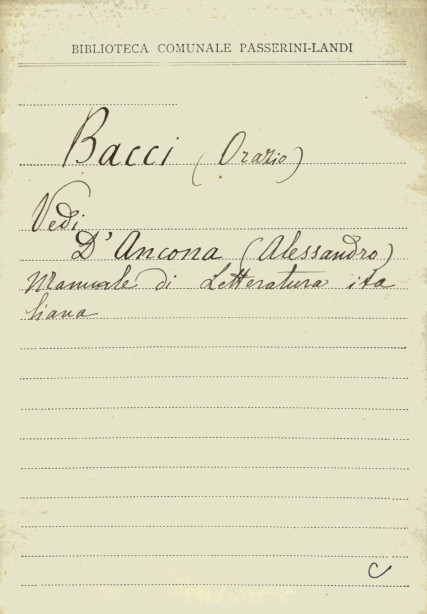 BIBLIOTECA COMUNALE PASSERINI-LANDI
Bacci (Orazio)
Vedi
D'Ancona (Alessandro)
Manuale di Letteratura ita
liana
C